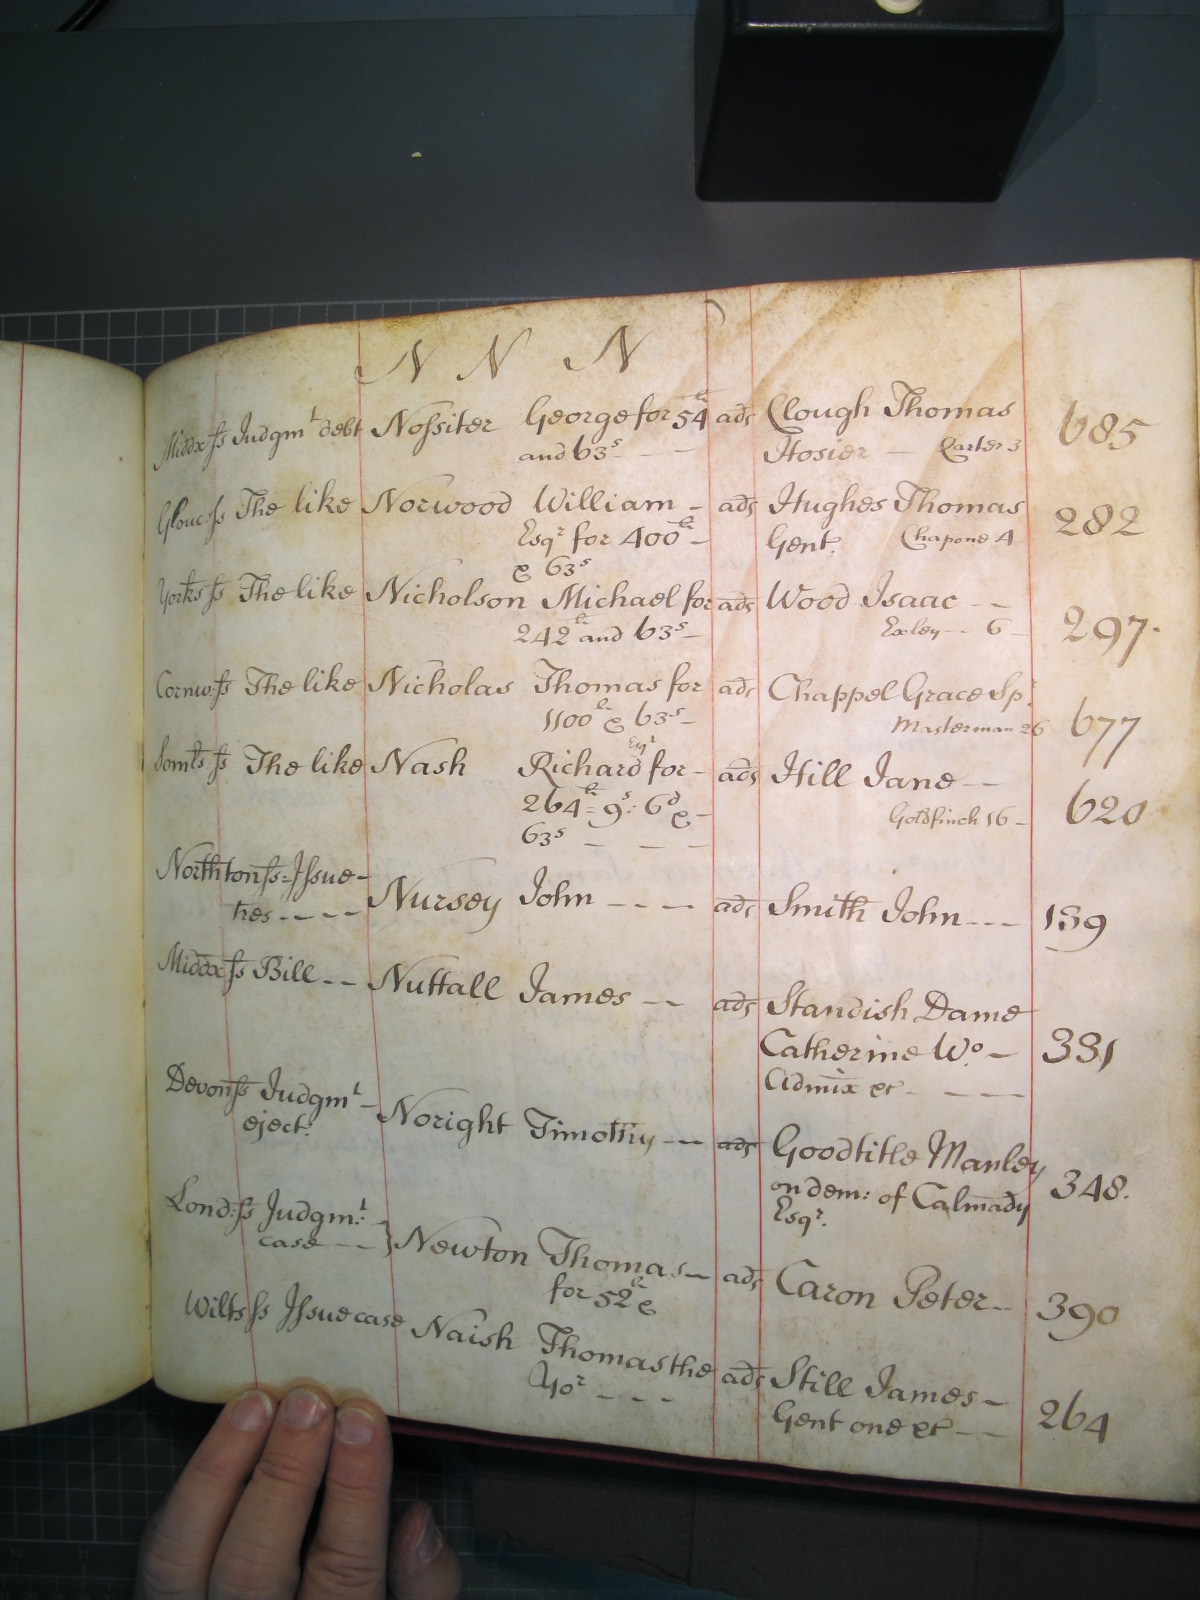 N N N
Middx ss Judgmt debt Nossiter George for 54li ads Clough Thomas 685
and 63s - - Hosier - Carter 3
Glouc ss The like Norwood William - ads Hughes Thomas 282
Esqr for 400li - Gent. Chapone 4
& 63s
Yorks ss The like Nicholson Michael for ads Wood Isaac - - 297.
242li and 63s - Exley - - 6 -
Cornw. ss The like Nicholas Thomas for ads Chappel Grace Spr 677
1100li & 63s - Masterman 26
Somts ss The like Nash Richard Esqr for - ads Hill Jane - - 620
264li = 9s: 6d & - Goldfinch 16 -
63s - - -
Northton ss = Issue - Nursey John - - - - ads Smith John - - - 139
tres - - - -
Middx ss Bill - - Nuttall James - - ads Standish Dame 331
Catherine Wo. -
Admix et - - - -
Devon ss Judgmt - Noright Timothy - - ads Goodtitle Manley 348.
eject. on dem: of Calmady
Esqr.
Lond: ss Judgmt: - Newton Thomas - - ads Caron Peter - - 390
case - - } for 52li &
Wilts ss Issue case Naish Thomas the ads Still James - 264
Yor - - - Gent one et - -